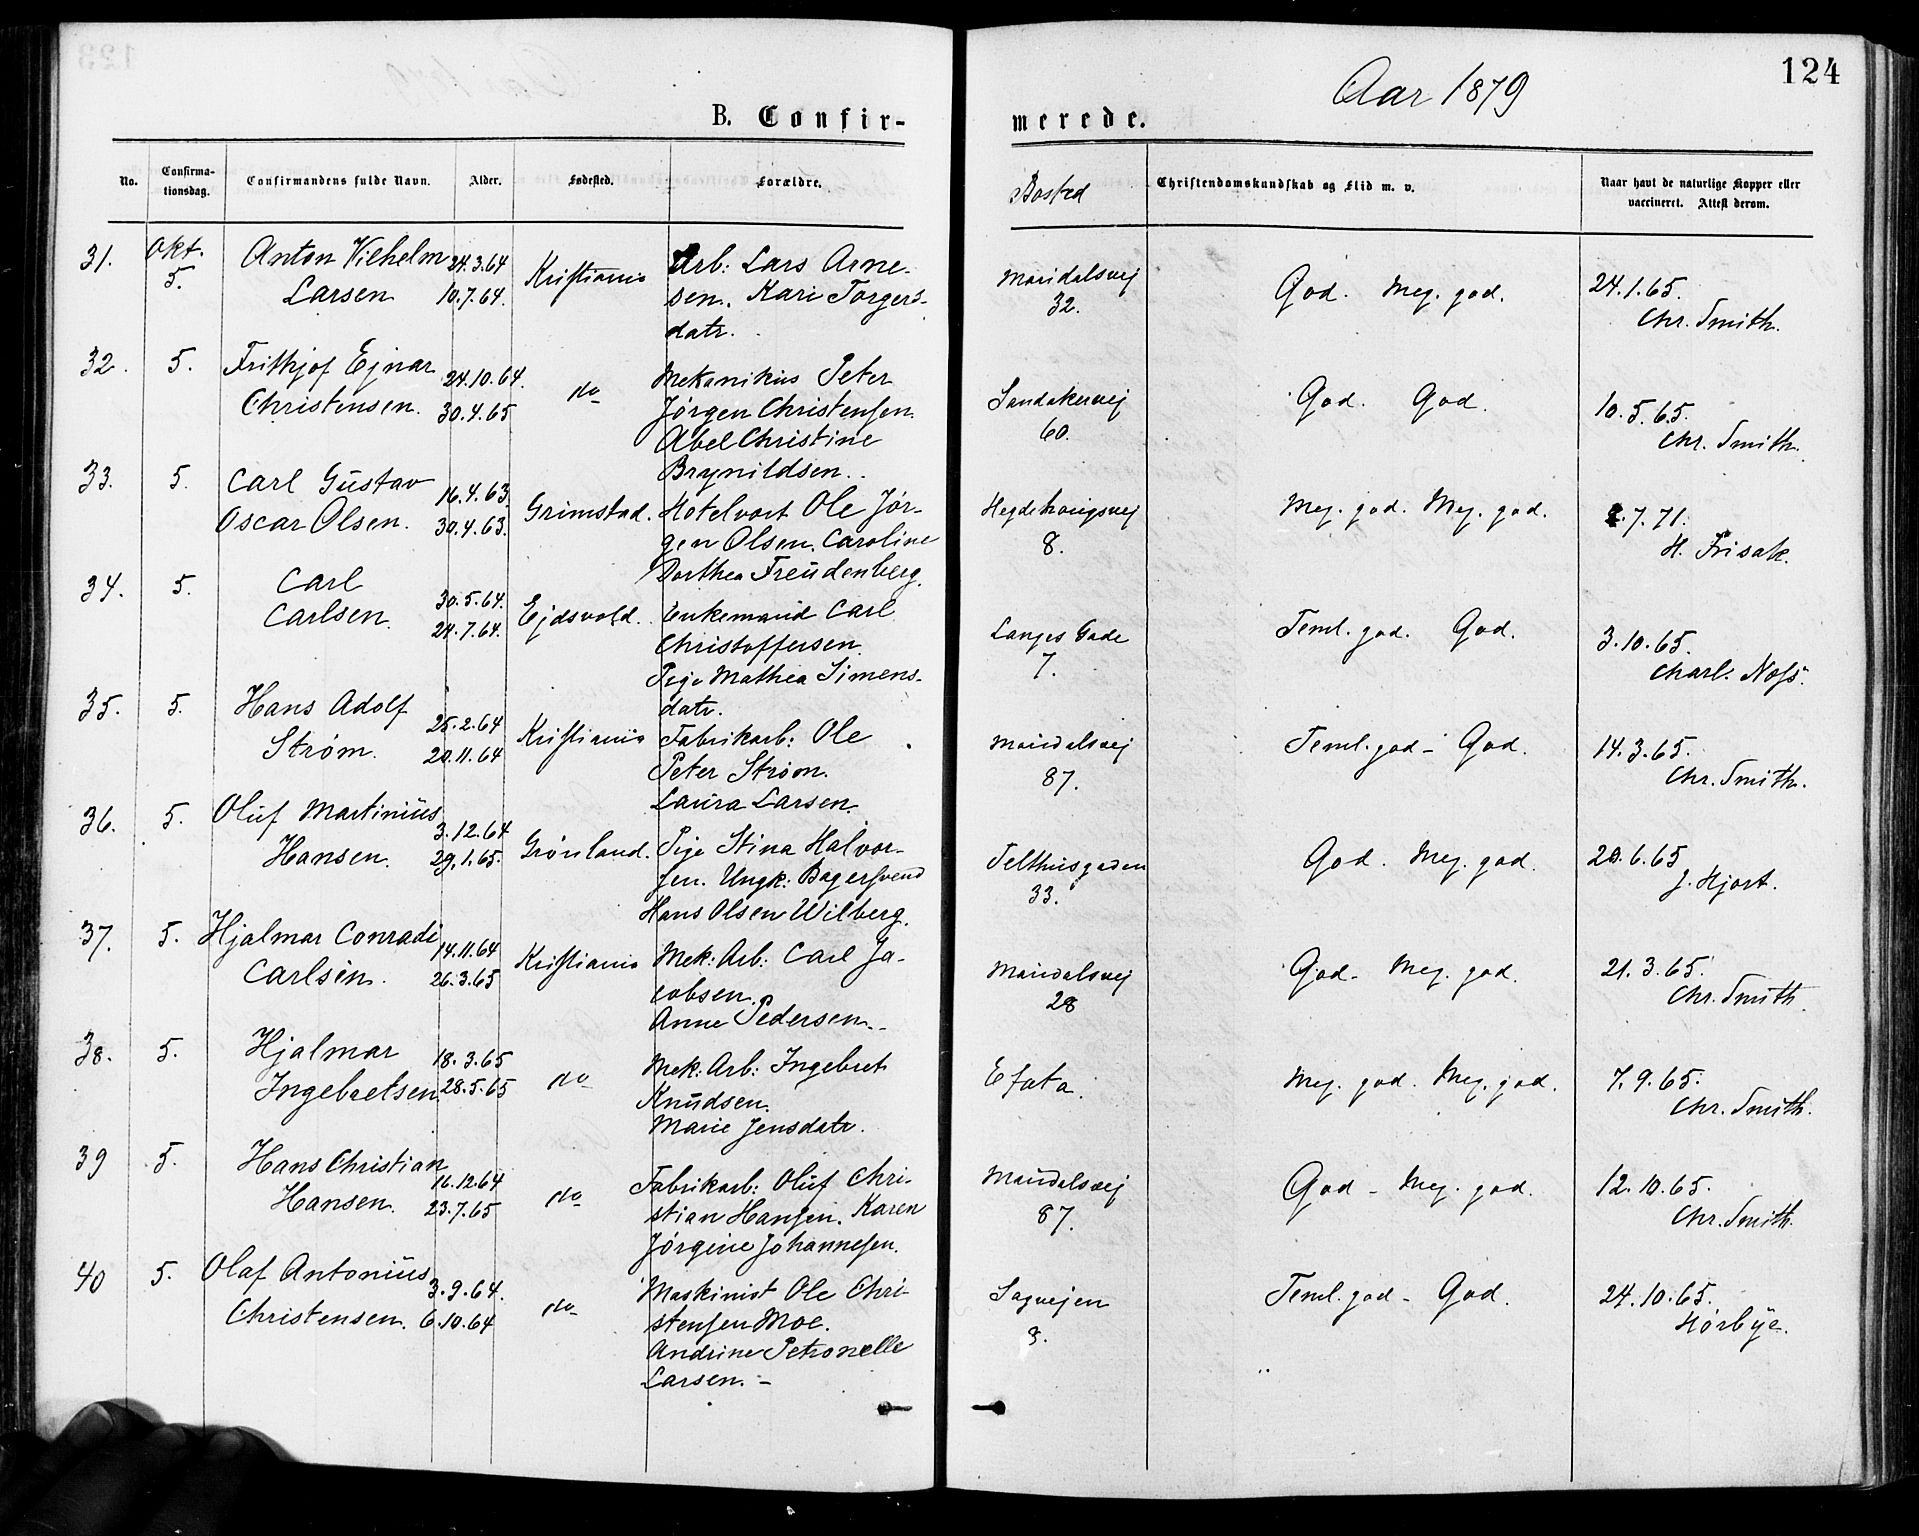 124
Aar 1879
B. Confir-
merede.
No.
Confirma-
tionsdag.
Confirmandens fulde Navn.
Alder.
Fødested.
Forældre.
Bosted
Christendomskundskab og Flid m. v.
Naar havt de naturlige Kopper eller
vaccineret. Attest derom.
31. Okt. Anton Vilhelm 24.3.64 Kristiania Arb: Lars Arne- Maridalsvej God. Meg. god. 24.1.65.
5. Larsen 10.7.64. sen. Kari Torgers- 32. Chr. Smith.
datr.
32. 5. Frithjof Ejnar 24.10.64. do Mekanikus Peter Sandakervej God. God. 10.5.65.
Christensen. 30.4.65 Jørgen Christensen. 60. Chr. Smith.
Abel Christine
Brynildsen.
33. 5. Carl Gustav 16.4.63. Grimstad. Hotelvært Ole Jør- Hegdehaugsvej Meg. god. Meg. god. 2.7.71.
Oscar Olsen. 30.4.63. gen Olsen. Caroline 8. H. Frisak.
Dorthea Freudenberg.
34. 5. Carl 30.5.64. Ejdsvold. Enkemand Carl Langes Gade Teml. god. God. 3.10.65.
Carlsen. 24.7.64. Christoffersen. 7. Charl. Ness.
Pige Mathea Simens-
datr.
35. 5. Hans Adolf 25.2.64 Kristiania Fabrikarb: Ole Maridalsvej Teml. god - God. 14.3.65.
Strøm. 20.11.64 Peter Strøm. 87. Chr. Smith.
Laura Larsen.
36. 5. Oluf Martinius 3.12.64 Grønland. Pige Stina Halvor- Telthusgaden God. Meg. god. 20.6.65
Hansen. 29.1.65. sen. Ungk: Bagersvend 33. J. Hjort.
Hans Olsen Wilberg.
37. 5. Hjalmar Conradi 14.11.64 Kristiania Mek: Arb: Carl Ja- Maridalsvej God - Meg. god. 21.3.65.
Carlsen. 26.3.65 cobsen. 28 Chr. Smith.
Anne Pedersen.
38. 5. Hjalmar 18.3.65 do Mek: Arb: Ingebret Efata. Meg. god. Meg. god. 7.9.65.
Ingebretsen. 28.5.65 Knudsen. Chr. Smith.
Marie Jensdatr.
39 5. Hans Christian 16.12.64 do Fabrikarb: Oluf Chri- Maridalsvej God - Meg. god. 12.10.65.
Hansen. 23.7.65 stian Hansen. Karen 87. Chr. Smith.
Jørgine Johannesen.
40 5. Olaf Antonius 3.9.64. do Maskinist Ole Chri- Sagvejen Teml. god - God. 24.10.65.
Christensen. 6.10.64 stensen Moe. 8. Hørbye.
Andrine Petronelle
Larsen. -